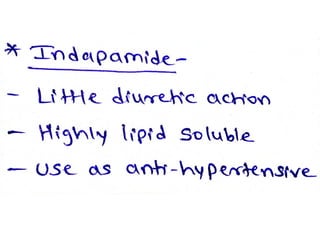 * Indapamide -
- Little diuretic action
- Highly lipid soluble
- Use as anti-hypertensive